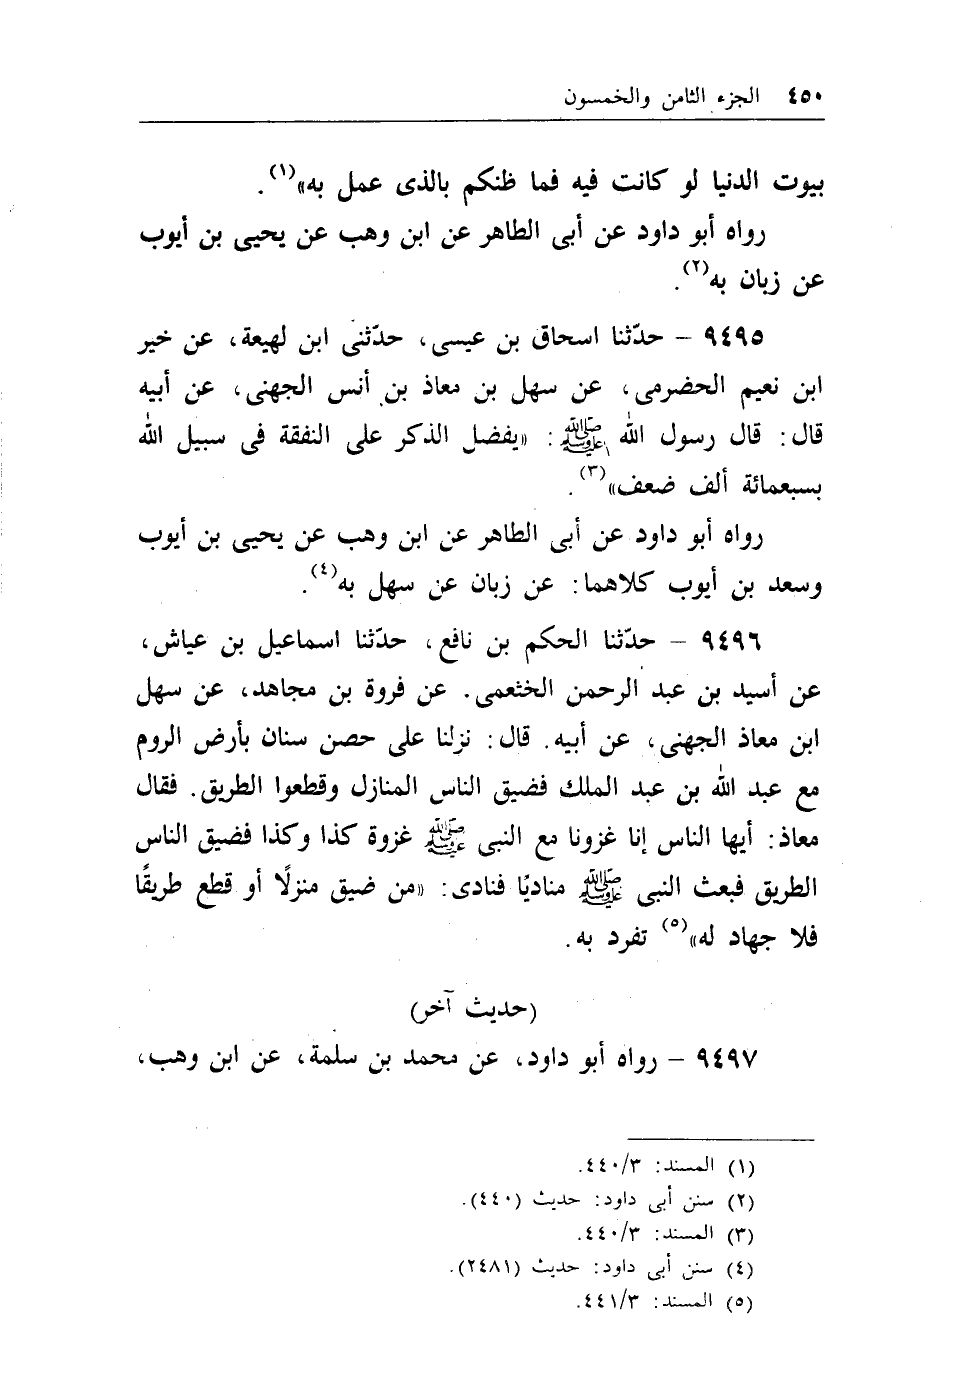 ٤٥٠ الجزء الثامن والخمسون
بيوت الدنيا لو كانت فيه فما ظنكم بالذى عمل به»(١).
رواه أبو داود عن أبى الطاهر عن ابن وهب عن يحيى بن أيوب
عن زبان به(٢).
٩٤٩٥ – حدّثنا اسحاق بن عيسى، حدّثنى ابن لهيعة، عن خير
ابن نعيم الحضرمى، عن سهل بن معاذ بن أنس الجهنى، عن أبيه
قال: قال رسول الله ﷺ: «يفضل الذكر على النفقة فى سبيل الله
بسبعمائة ألف ضعف»(٣).
رواه أبو داود عن أبى الطاهر عن ابن وهب عن يحيى بن أيوب
وسعد بن أيوب كلاهما: عن زبان عن سهل به(٤).
٩٤٩٦ – حدّثنا الحكم بن نافع، حدّثنا اسماعيل بن عياش،
عن أسيد بن عبد الرحمن الخثعمى. عن فروة بن مجاهد، عن سهل
ابن معاذ الجهنى، عن أبيه. قال: نزلنا على حصن سنان بأرض الروم
مع عبد الله بن عبد الملك فضيق الناس المنازل وقطعوا الطريق. فقال
معاذ: أيها الناس إنا غزونا مع النبى ﷺ غزوة كذا وكذا فضيق الناس
الطريق فبعث النبى ﷺ مناديًا فنادى: «من ضيق منزلًا أو قطع طريقًا
فلا جهاد له»(٥) تفرد به.
(حديث آخر)
٩٤٩٧ – رواه أبو داود، عن محمد بن سلمة، عن ابن وهب،
(١) المسند: ٤٤٠/٣.
(٢) سنن أبى داود: حديث (٤٤٠).
(٣) المسند: ٤٤٠/٣.
(٤) سنن أبى داود: حديث (٢٤٨١).
(٥) المسند: ٤٤١/٣.